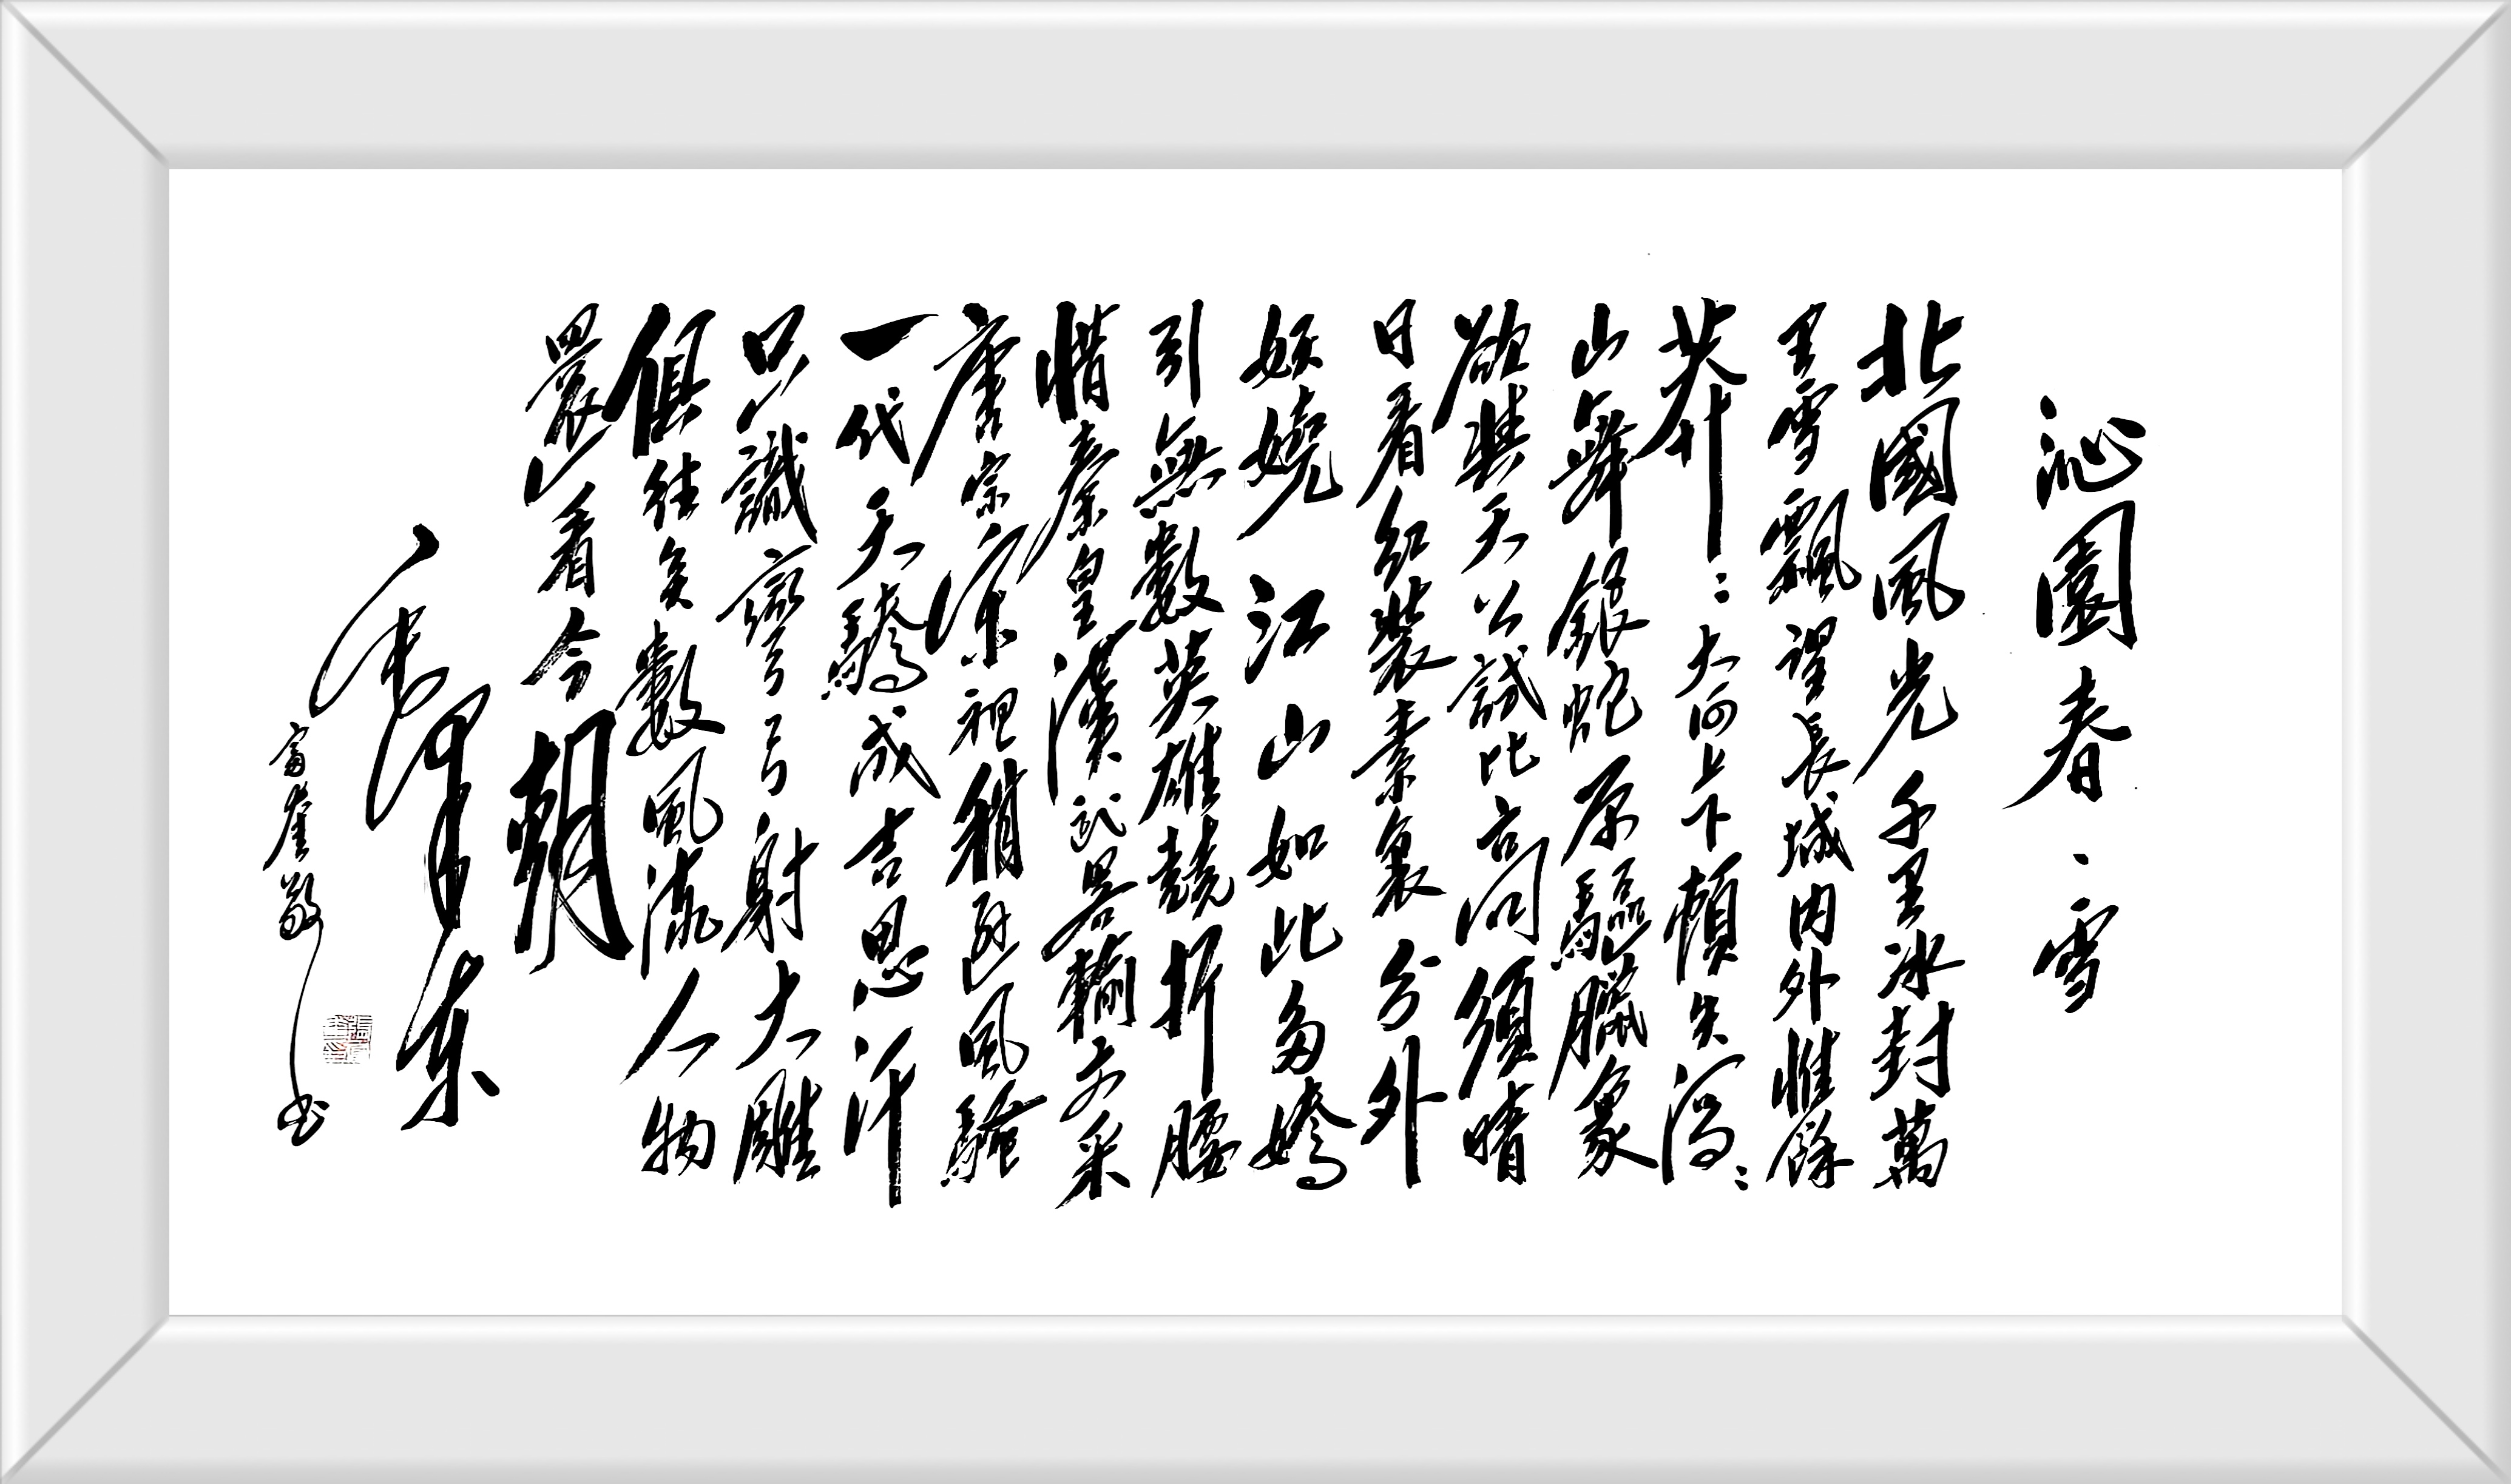 沁園春·雪
北國風光千里冰封萬
里雪飄望長城内外惟餘
莽：大河上下頓失滔：
山舞銀蛇原驅臘象
欲與天公試比高須晴
日看紅裝素裹分外
妖嬈江山如此多嬌
引無數英雄競折腰
惜秦皇漢武畧輸文采
唐宗宋祖稍遜風騷
一代天驕成吉思汗
只識彎弓射大雕
俱往矣數風流人物
還看今朝
毛澤東
富崔敬书